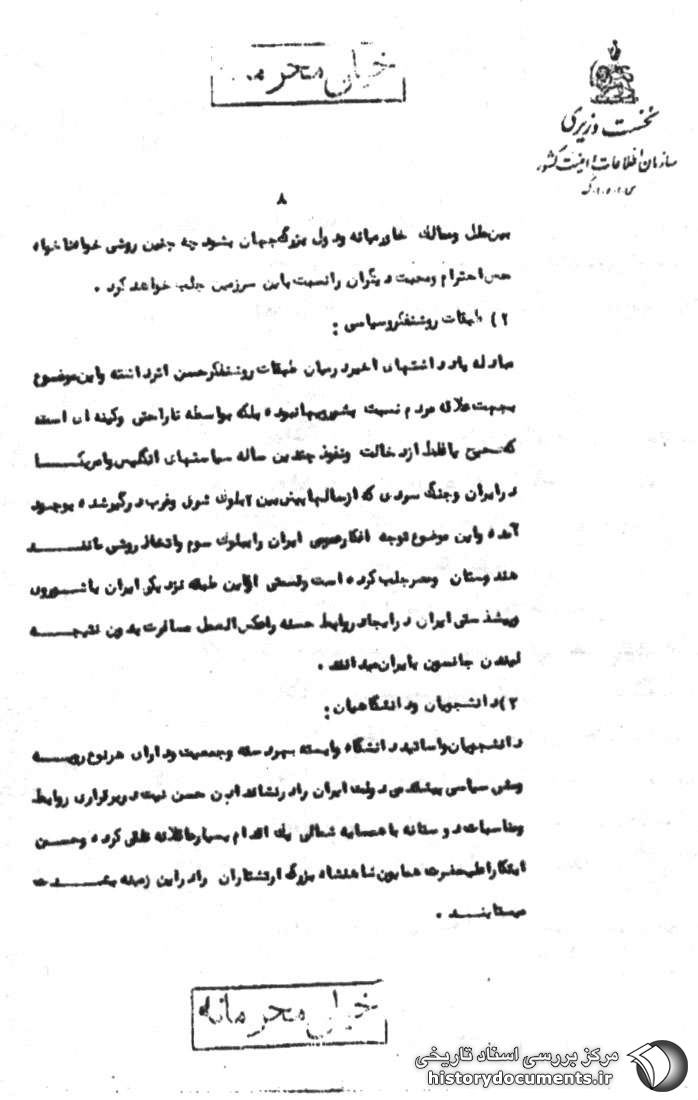 خیلی محرمانه
نخست وزیری
سازمان اطلاعات و امنیت کشور
س.ا.و.ا.ک
۸
بین ملل و ممالک خاورمیانه و دول بزرگ جهان بشود چه چنین روشی خواه ناخواه
حس احترام و محبت دیگران را نسبت باین سرزمین جلب خواهد کرد .
۲) طبقات روشنفکر و سیاسی :
مبادله یادداشتهای اخیر در میان طبقات روشنفکر حسن اثر داشته و این موضوع
بجهت علاقه مردم نسبت بشوروی‌ها نبوده بلکه بواسطه ناراحتی و کینه ای است
که صحیح یا غلط از دخالت و نفوذ چندین ساله سیاستهای انگلیس و امریکا
در ایران و جنگ سردی که از سالها پیش بین ۲ بلوک شرق و غرب درگیر شده بوجود
آمده و این موضوع توجه افکار عمومی ایران را ببلوک سوم و اتخاذ روشی مانند
هندوستان و مصر جلب کرده است و قسمتی از این طبقه نزدیکی ایران با شوروی
و پیشدستی ایران در ایجاد روابط حسنه را عکس العمل مسافرت بدون نتیجه
لیندن جانسون بایران میدانند .
۳) دانشجویان و دانشگاهیان :
دانشجویان و اساتید دانشگاه وابسته بهر دسته و جمعیت و دارای هر نوع رویه
و مشی سیاسی پیشقدمی دولت ایران را در نشان دادن حسن نیت و برقراری روابط
و مناسبات دوستانه با همسایه شمالی یک اقدام بسیار عاقلانه تلقی کرده و حسن
ابتکار اعلیحضرت همایون شاهنشاه بزرگ ارتشتاران را در این زمینه بشدت
میستایند .
خیلی محرمانه
مرکز بررسی اسناد تاریخی
historydocuments.ir